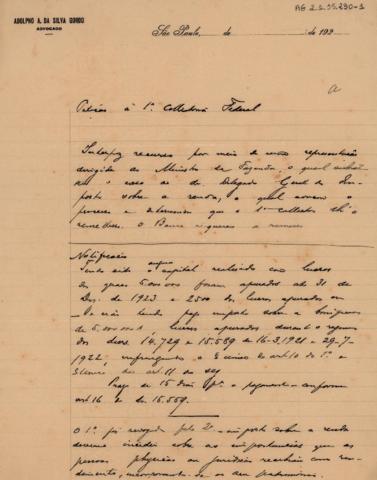 AG 2.2.25.290-1
ADOLPHO A. DA SILVA GORDO
ADVOGADO
São Paulo, de de 192
a
Petição á 1ª Collectoria Federal
Interpoz recurso por meio de uma representação
dirigida ao Ministro da Fazenda, o qual
o caso ao do Delegado Geral do Im-
posto sobre a renda, o qual
parecer e determinou que o 1º collector lh'o
remettesse. O Banco requereu a remessa
Notificação
Tendo sido o capital realizado com lucros
dos quaes 5.000.000 foram apurados até 31 de
Dez. de 1923 e 2500 dos lucros apurados
tendo pago imposto sobre a
de 5.000.000, lucros apurados durante o regimen
dos decs. 14.729 e 15.589 de 16-3-1921 e 29-7-
1922, infringentes o § unico do art 10 do 1º e
art. 11 do seg.
Prazo de 15 dias pª o pagamento conforme
art 16 do do 15.589.
O 1º foi revogado pelo 2º - imposto sobre a renda
deverá incidir sobre as importancias que as
pessoas physicas ou juridicas recebiam com ren-
dimento, incorporando-os ao seu patrimonio.